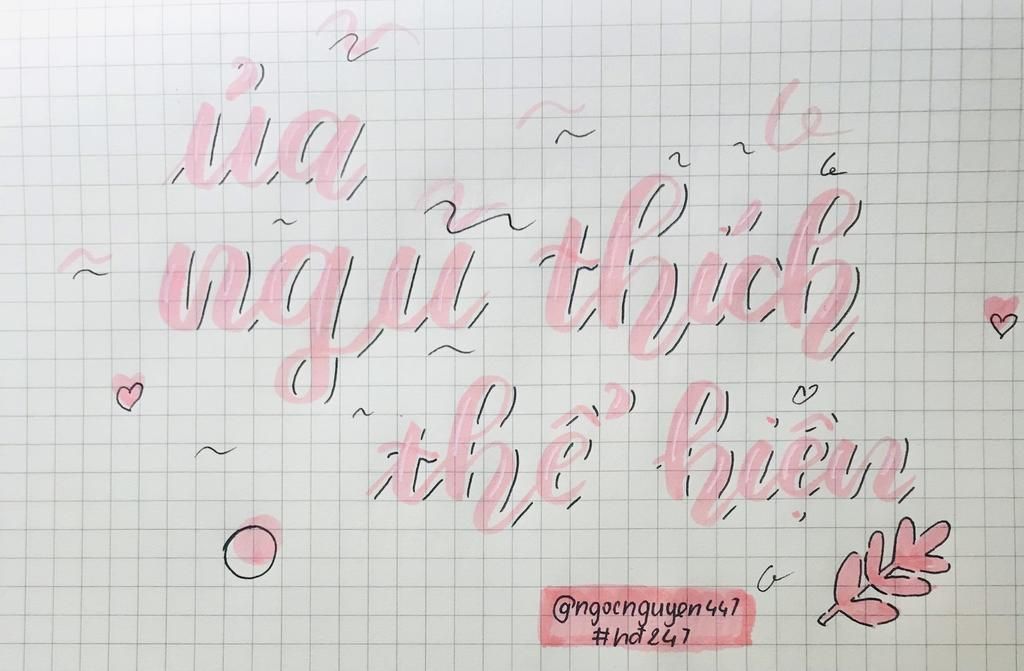 ủa
ngũ thích
thể hiện
@ngocnguyen447
#nđ247